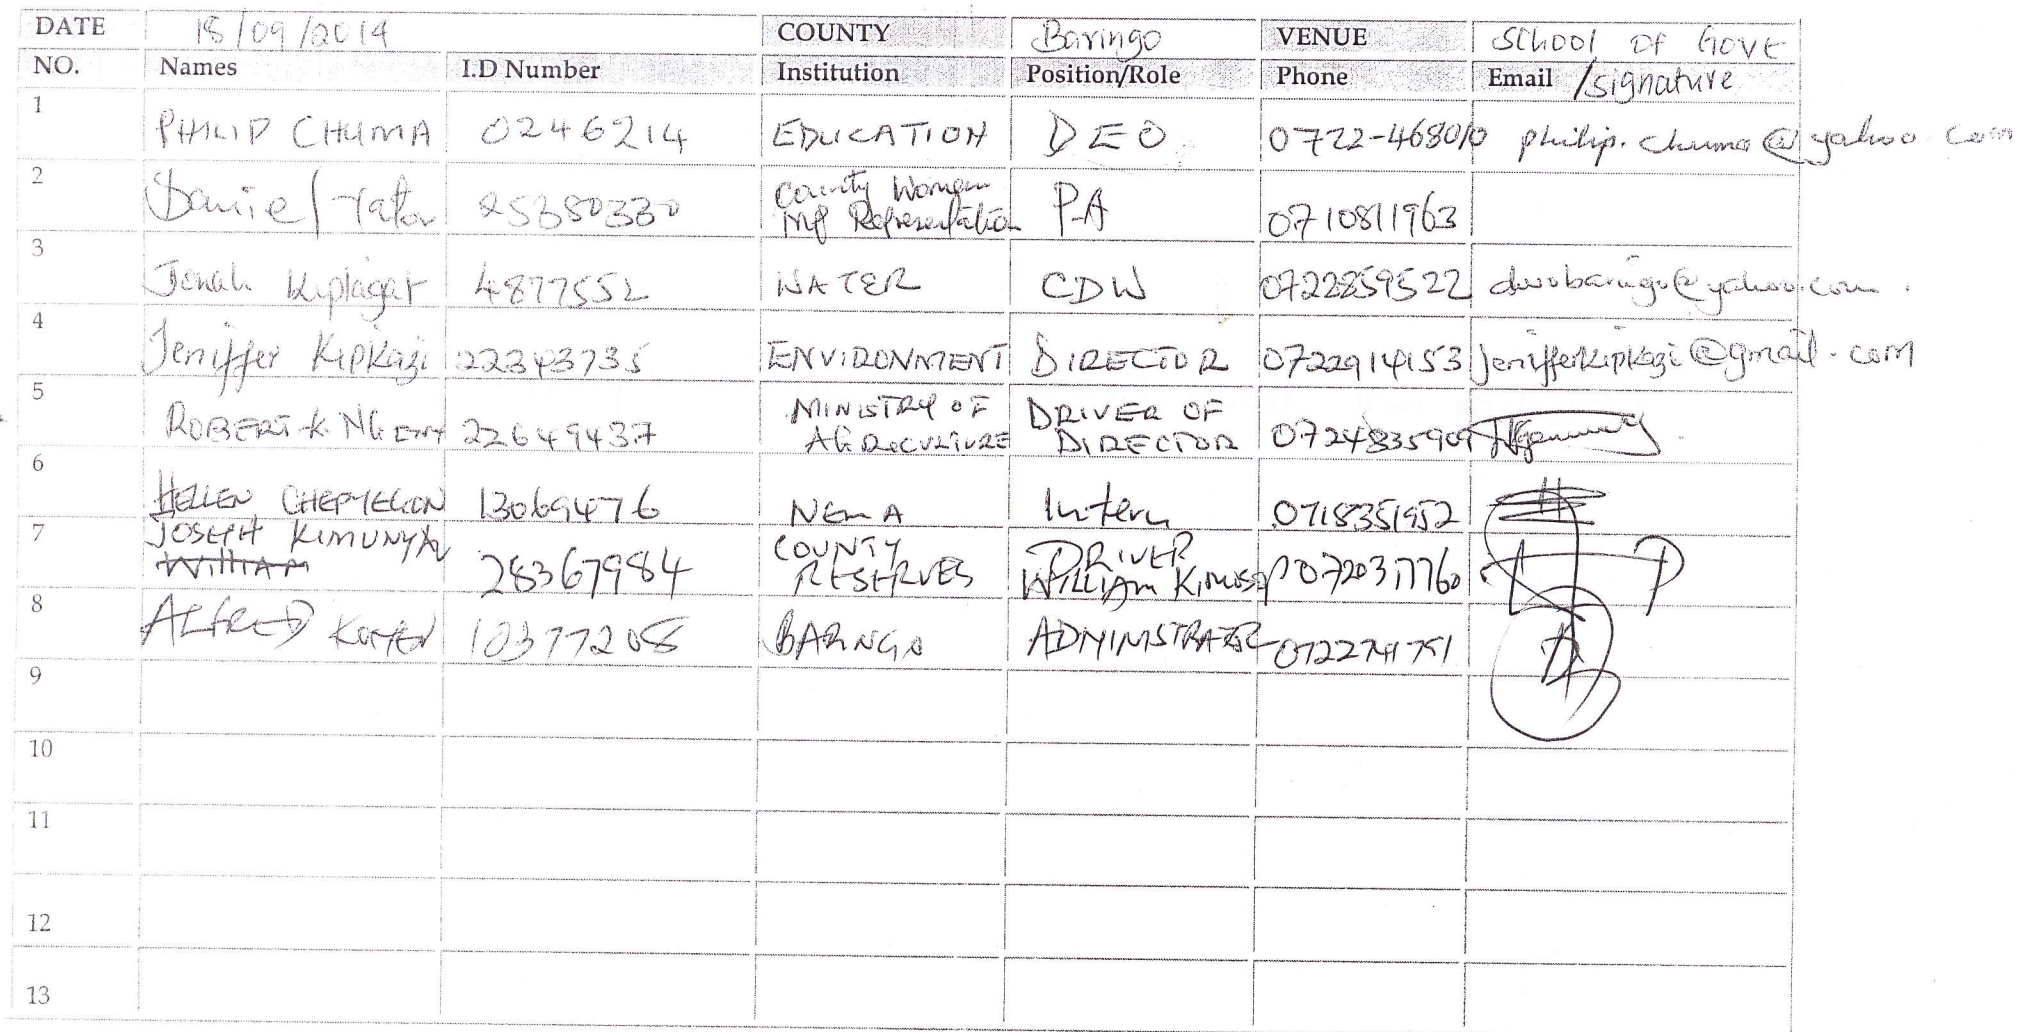 DATE 18/09/2014 COUNTY Baringo VENUE SCHOOL OF GOVt
NO. Names I.D Number Institution Position/Role Phone Email /signature
1 PHILIP CHUMA 0246214 EDUCATION DEO 0722-468010 philip.chuma@yahoo.com
2 Daniel 25380330 County Women MP Representation P.A 0710811963
3 Jonah Kiplagat 4877552 WATER CDW 0722859522 dwobaringo@yahoo.com.
4 Jeniffer Kipkazi 22343735 ENVIRONMENT DIRECTOR 0722914153 jenifferkipkazi@gmail.com
5 ROBERT K. NGENY 22649437 MINISTRY OF AGRICULTURE DRIVER OF DIRECTOR 0724835909
6 HELLEN 13069476 NEMA Intern 0715351952
7 JOSEPH William 28367984 COUNTY RESERVES DRIVER WILLIAM
8 ALFRED BARNGO ADMINISTRATOR
9
10
11
12
13